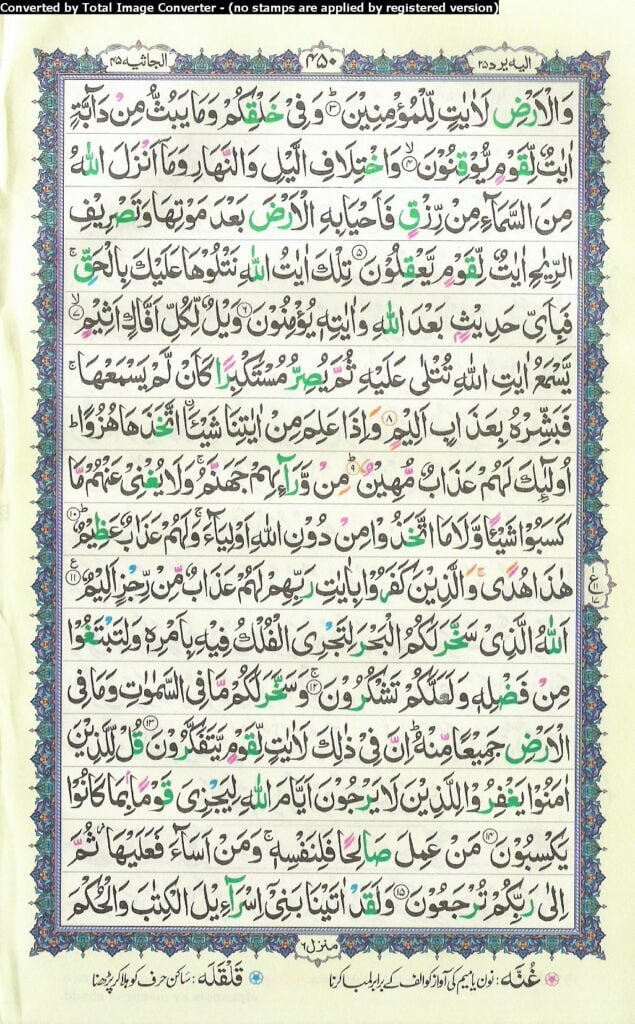 Converted by Total Image Converter - (no stamps are applied by registered version)
الیه یرد ۲۵
۴۵۰
الجاثیة ۴۵
وَالْاَرْضِ لَاٰیٰتٍ لِّلْمُؤْمِنِیْنَ ؕ﴿۳﴾ وَ فِیْ خَلْقِكُمْ وَمَا یَبُثُّ مِنْ دَآبَّةٍ
اٰیٰتٌ لِّقَوْمٍ یُّوْقِنُوْنَ ۙ﴿۴﴾ وَاخْتِلَافِ الَّیْلِ وَالنَّهَارِ وَمَاۤ اَنْزَلَ اللّٰهُ
مِنَ السَّمَآءِ مِنْ رِّزْقٍ فَاَحْیَا بِهِ الْاَرْضَ بَعْدَ مَوْتِهَا وَتَصْرِیْفِ
الرِّیٰحِ اٰیٰتٌ لِّقَوْمٍ یَّعْقِلُوْنَ ﴿۵﴾ تِلْكَ اٰیٰتُ اللّٰهِ نَتْلُوْهَا عَلَیْكَ بِالْحَقِّ ۚ
فَبِاَیِّ حَدِیْثٍۭ بَعْدَ اللّٰهِ وَاٰیٰتِهٖ یُؤْمِنُوْنَ ﴿۶﴾ وَیْلٌ لِّكُلِّ اَفَّاكٍ اَثِیْمٍ ۙ﴿۷﴾
یَّسْمَعُ اٰیٰتِ اللّٰهِ تُتْلٰی عَلَیْهِ ثُمَّ یُصِرُّ مُسْتَكْبِرًا كَاَنْ لَّمْ یَسْمَعْهَا ۚ
فَبَشِّرْهُ بِعَذَابٍ اَلِیْمٍ ﴿۸﴾ وَاِذَا عَلِمَ مِنْ اٰیٰتِنَا شَیْـًٔاۨ اتَّخَذَهَا هُزُوًا ؕ
اُولٰٓئِكَ لَهُمْ عَذَابٌ مُّهِیْنٌ ؕ﴿۹﴾ مِنْ وَّرَآىِٕهِمْ جَهَنَّمُ ۚ وَلَا یُغْنِیْ عَنْهُمْ مَّا
كَسَبُوْا شَیْـًٔا وَّلَا مَا اتَّخَذُوْا مِنْ دُوْنِ اللّٰهِ اَوْلِیَآءَ ۚ وَلَهُمْ عَذَابٌ عَظِیْمٌ ؕ﴿۱۰﴾
هٰذَا هُدًی ۚ وَالَّذِیْنَ كَفَرُوْا بِاٰیٰتِ رَبِّهِمْ لَهُمْ عَذَابٌ مِّنْ رِّجْزٍ اَلِیْمٌ ﴿۱۱﴾ ع
اَللّٰهُ الَّذِیْ سَخَّرَ لَكُمُ الْبَحْرَ لِتَجْرِیَ الْفُلْكُ فِیْهِ بِاَمْرِهٖ وَلِتَبْتَغُوْا
مِنْ فَضْلِهٖ وَلَعَلَّكُمْ تَشْكُرُوْنَ ۚ﴿۱۲﴾ وَسَخَّرَ لَكُمْ مَّا فِی السَّمٰوٰتِ وَمَا فِی
الْاَرْضِ جَمِیْعًا مِّنْهُ ؕ اِنَّ فِیْ ذٰلِكَ لَاٰیٰتٍ لِّقَوْمٍ یَّتَفَكَّرُوْنَ ﴿۱۳﴾ قُلْ لِّلَّذِیْنَ
اٰمَنُوْا یَغْفِرُوْا لِلَّذِیْنَ لَا یَرْجُوْنَ اَیَّامَ اللّٰهِ لِیَجْزِیَ قَوْمًۢا بِمَا كَانُوْا
یَكْسِبُوْنَ ﴿۱۴﴾ مَنْ عَمِلَ صَالِحًا فَلِنَفْسِهٖ ۚ وَمَنْ اَسَآءَ فَعَلَیْهَا ؗ ثُمَّ
اِلٰی رَبِّكُمْ تُرْجَعُوْنَ ﴿۱۵﴾ وَلَقَدْ اٰتَیْنَا بَنِیْۤ اِسْرَآءِیْلَ الْكِتٰبَ وَالْحُكْمَ
ع ۱۱ ۱۷
منزل ۶
غُنّه: نون یا میم کی آواز کو الف کے برابر لمبا کرنا
قلقله: ساکن حرف کو ہلا کر پڑھنا